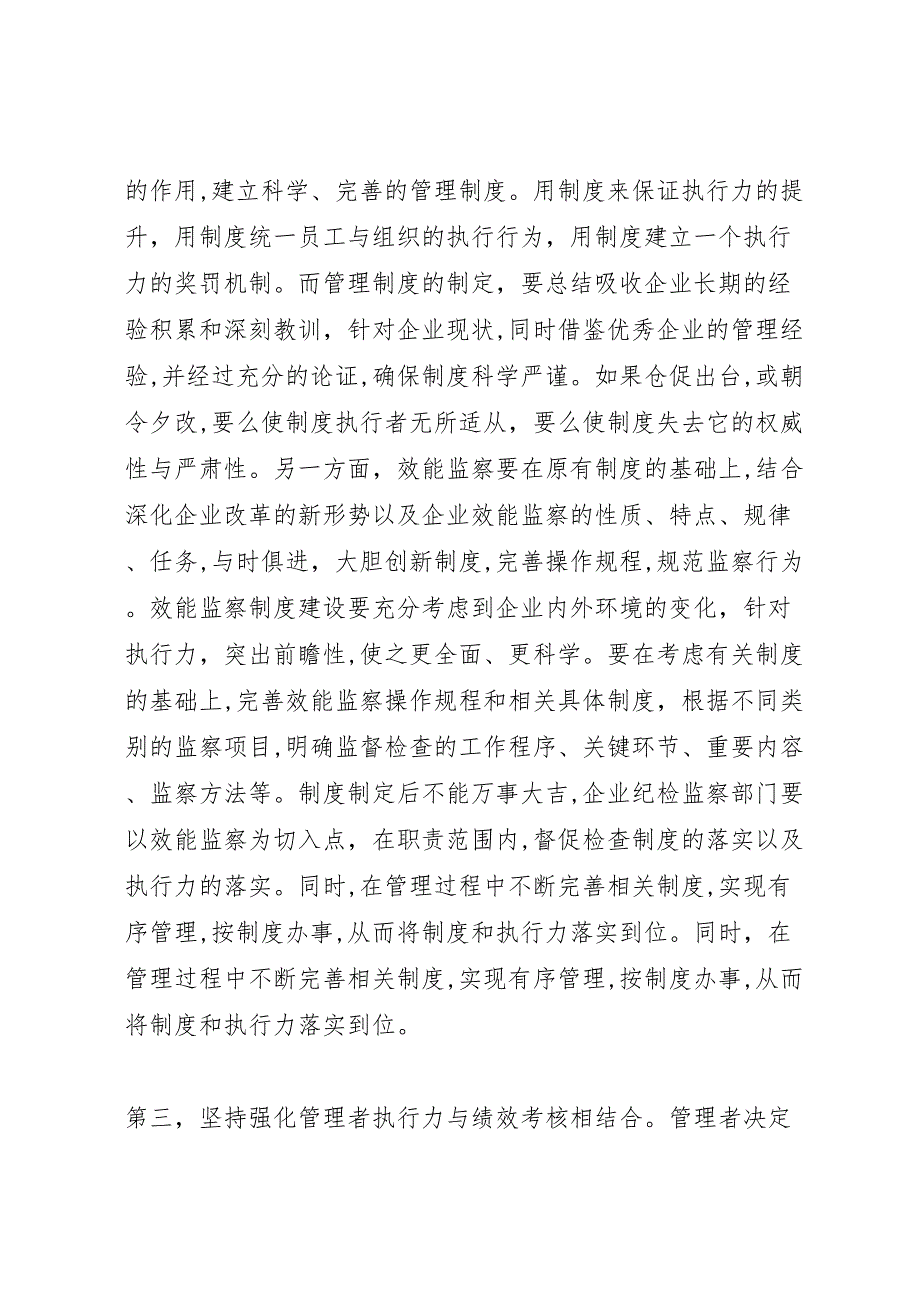 的作用,建立科学、完善的管理制度。用制度来保证执行力的提
升，用制度统一员工与组织的执行行为，用制度建立一个执行
力的奖罚机制。而管理制度的制定，要总结吸收企业长期的经
验积累和深刻教训，针对企业现状,同时借鉴优秀企业的管理经
验,并经过充分的论证,确保制度科学严谨。如果仓促出台,或朝
令夕改,要么使制度执行者无所适从，要么使制度失去它的权威
性与严肃性。另一方面，效能监察要在原有制度的基础上,结合
深化企业改革的新形势以及企业效能监察的性质、特点、规律
、任务,与时俱进，大胆创新制度,完善操作规程,规范监察行为
。效能监察制度建设要充分考虑到企业内外环境的变化，针对
执行力，突出前瞻性,使之更全面、更科学。要在考虑有关制度
的基础上,完善效能监察操作规程和相关具体制度，根据不同类
别的监察项目,明确监督检查的工作程序、关键环节、重要内容
、监察方法等。制度制定后不能万事大吉,企业纪检监察部门要
以效能监察为切入点，在职责范围内,督促检查制度的落实以及
执行力的落实。同时,在管理过程中不断完善相关制度,实现有
序管理,按制度办事,从而将制度和执行力落实到位。同时，在
管理过程中不断完善相关制度,实现有序管理,按制度办事,从而
将制度和执行力落实到位。
第三，坚持强化管理者执行力与绩效考核相结合。管理者决定